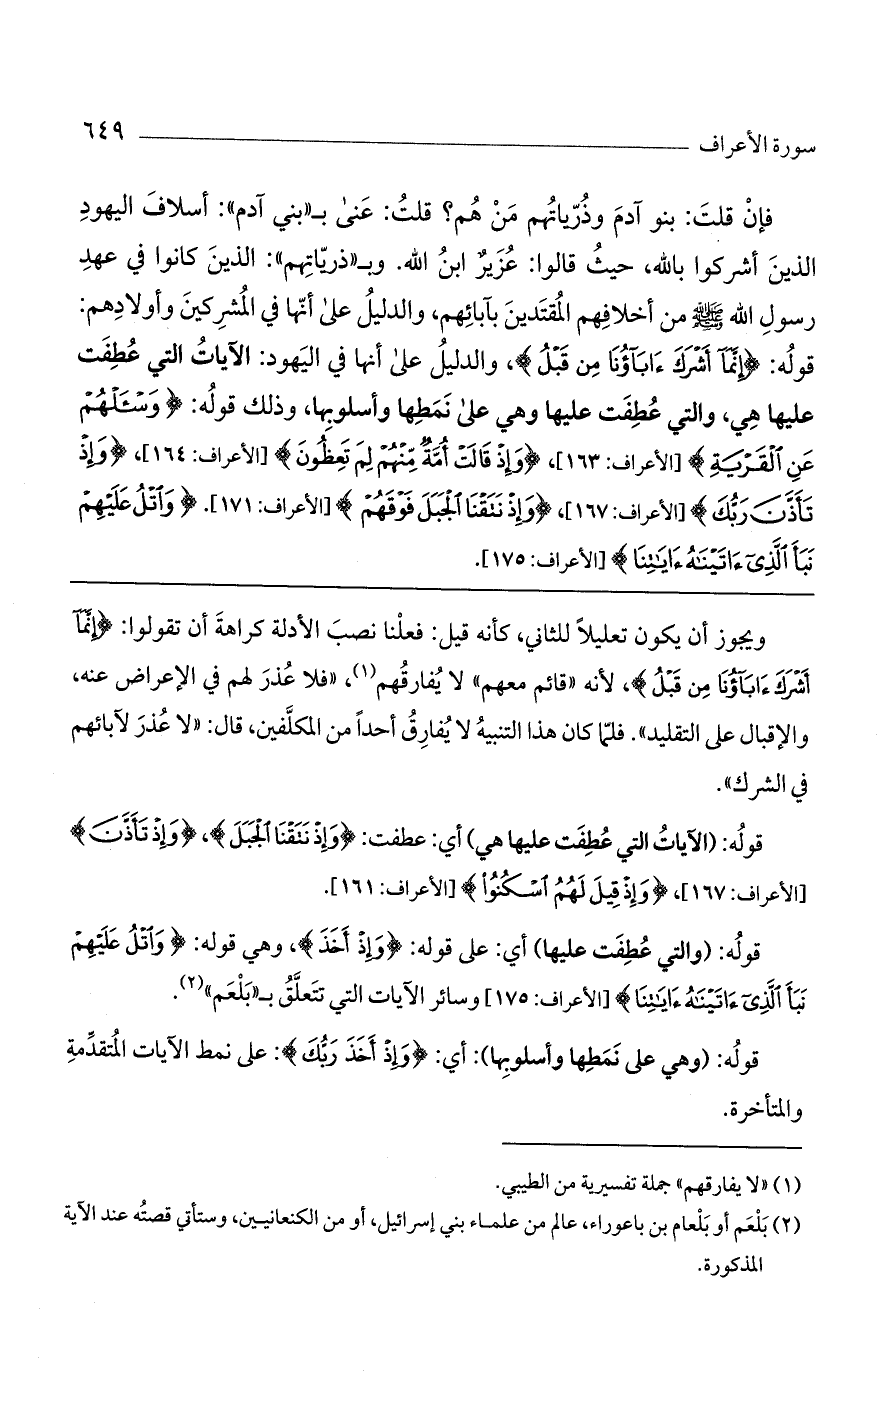 سورة الأعراف ٦٤٩
فإنْ قلتَ: بنو آدمَ وذُرّياتُهم مَنْ هُم؟ قلتُ: عَنىٰ بـ«بني آدم»: أسلافَ اليهودِ
الذينَ أشركوا بالله، حيثُ قالوا: عُزَيرٌ ابنُ الله. وبـ«ذريّاتِهم»: الذينَ كانوا في عهدِ
رسولِ الله ﷺ من أخلافِهم المُقتَدينَ بآبائِهم، والدليلُ علىٰ أنّها في المُشرِكينَ وأولادِهم:
قولُه: ﴿إِنَّمَآ أَشۡرَكَ ءَابَآؤُنَا مِن قَبۡلُ﴾، والدليلُ علىٰ أنها في اليَهود: الآياتُ التي عُطِفَت
عليها هِي، والتي عُطِفَت عليها وهي علىٰ نَمَطِها وأسلوبِها، وذلك قولُه: ﴿وَسۡـَٔلۡهُمۡ
عَنِ ٱلۡقَرۡيَةِ﴾ [الأعراف: ١٦٣]، ﴿وَإِذۡ قَالَتۡ أُمَّةٞ مِّنۡهُمۡ لِمَ تَعِظُونَ﴾ [الأعراف: ١٦٤]، ﴿وَإِذۡ
تَأَذَّنَ رَبُّكَ﴾ [الأعراف: ١٦٧]، ﴿وَإِذۡ نَتَقۡنَا ٱلۡجَبَلَ فَوۡقَهُمۡ﴾ [الأعراف: ١٧١]. ﴿وَٱتۡلُ عَلَيۡهِمۡ
نَبَأَ ٱلَّذِيٓ ءَاتَيۡنَٰهُ ءَايَٰتِنَا﴾ [الأعراف: ١٧٥].
ويجوز أن يكون تعليلاً للثاني، كأنه قيل: فعلْنا نصبَ الأدلة كراهةَ أن تقولوا: ﴿إِنَّمَآ
أَشۡرَكَ ءَابَآؤُنَا مِن قَبۡلُ﴾، لأنه «قائم معهم» لا يُفارقُهم(١)، «فلا عُذرَ لهم في الإعراض عنه،
والإقبال على التقليد». فلمّا كان هذا التنبيهُ لا يُفارِقُ أحداً من المكلَّفين، قال: «لا عُذرَ لآبائهم
في الشرك».
قولُه: (الآياتُ التي عُطِفَت عليها هي) أي: عطفت: ﴿وَإِذۡ نَتَقۡنَا ٱلۡجَبَلَ﴾، ﴿وَإِذۡ تَأَذَّنَ﴾
[الأعراف: ١٦٧]، ﴿وَإِذۡ قِيلَ لَهُمُ ٱسۡكُنُواْ﴾ [الأعراف: ١٦١].
قولُه: (والتي عُطِفَت عليها) أي: على قوله: ﴿وَإِذۡ أَخَذَ﴾، وهي قوله: ﴿وَٱتۡلُ عَلَيۡهِمۡ
نَبَأَ ٱلَّذِيٓ ءَاتَيۡنَٰهُ ءَايَٰتِنَا﴾ [الأعراف: ١٧٥] وسائر الآيات التي تتَعلَّقُ بـ«بَلْعَم»(٢).
قولُه: (وهي على نَمَطِها وأسلوبِها): أي: ﴿وَإِذۡ أَخَذَ رَبُّكَ﴾: على نمط الآيات المُتقدِّمةِ
والمتأخرة.
(١) «لا يفارقهم» جملة تفسيرية من الطيبي.
(٢) بَلْعَم أو بَلْعام بن باعوراء، عالم من علماء بني إسرائيل، أو من الكنعانيين، وستأتي قصتُه عند الآية
المذكورة.